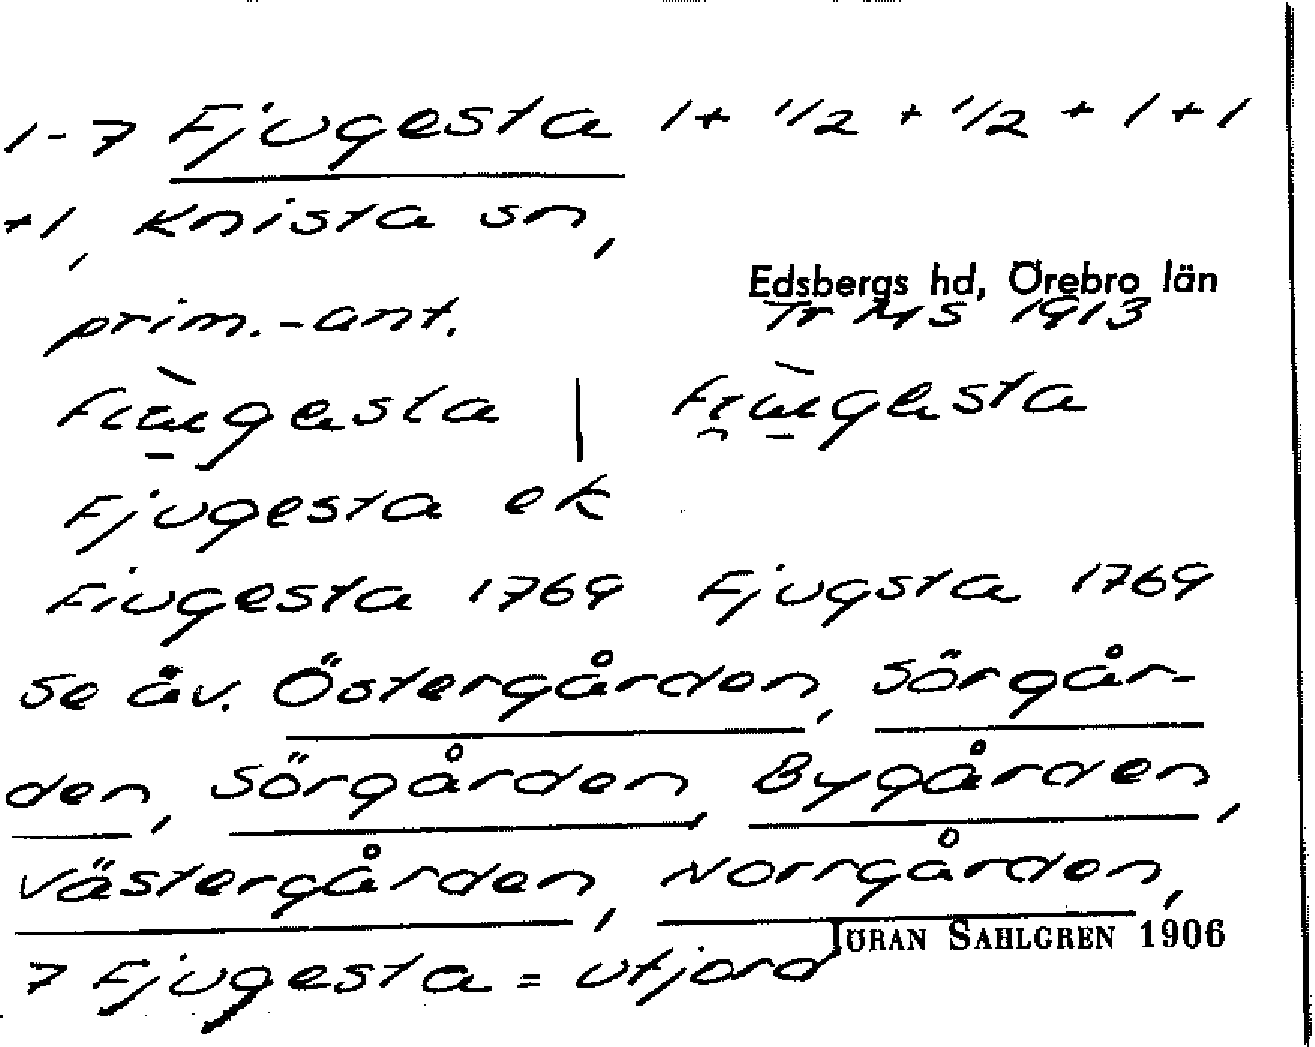 1-7 Fjugesta 1+ 1/2 + 1/2 + 1 + 1
+1, Knista sn,
Edsbergs hd, Örebro län
prim.-ant. Tr MS 1913
Fjugesta ek
Fiugesta 1769 Fjugsta 1769
se äv. Östergården, Sörgår-
den, Sörgården, Bygården,
Västergården, Norrgården,
JÖRAN SAHLGREN 1906
7 Fjugesta = utjord